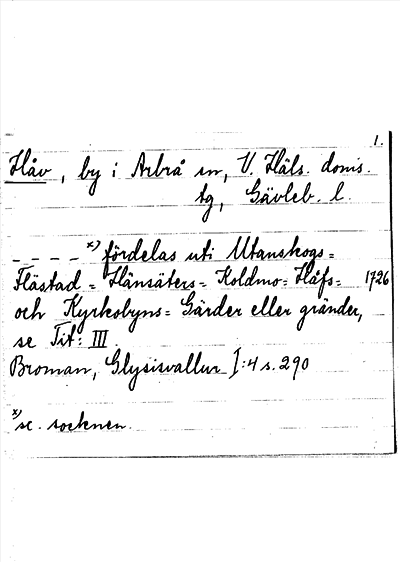 1.
Håv, by i Arbrå sn, V. Häls. doms.
tg, Gävleb. l.
- - - - x) fördelas uti Utanskogs=
Flästad = Hänsäters= Koldmo= Håfs= 1726
och Kyrkobyns= Gärder eller gränder,
se Tit: III
Broman, Glysisvallur I:4 s. 290
x) sc. socknen.